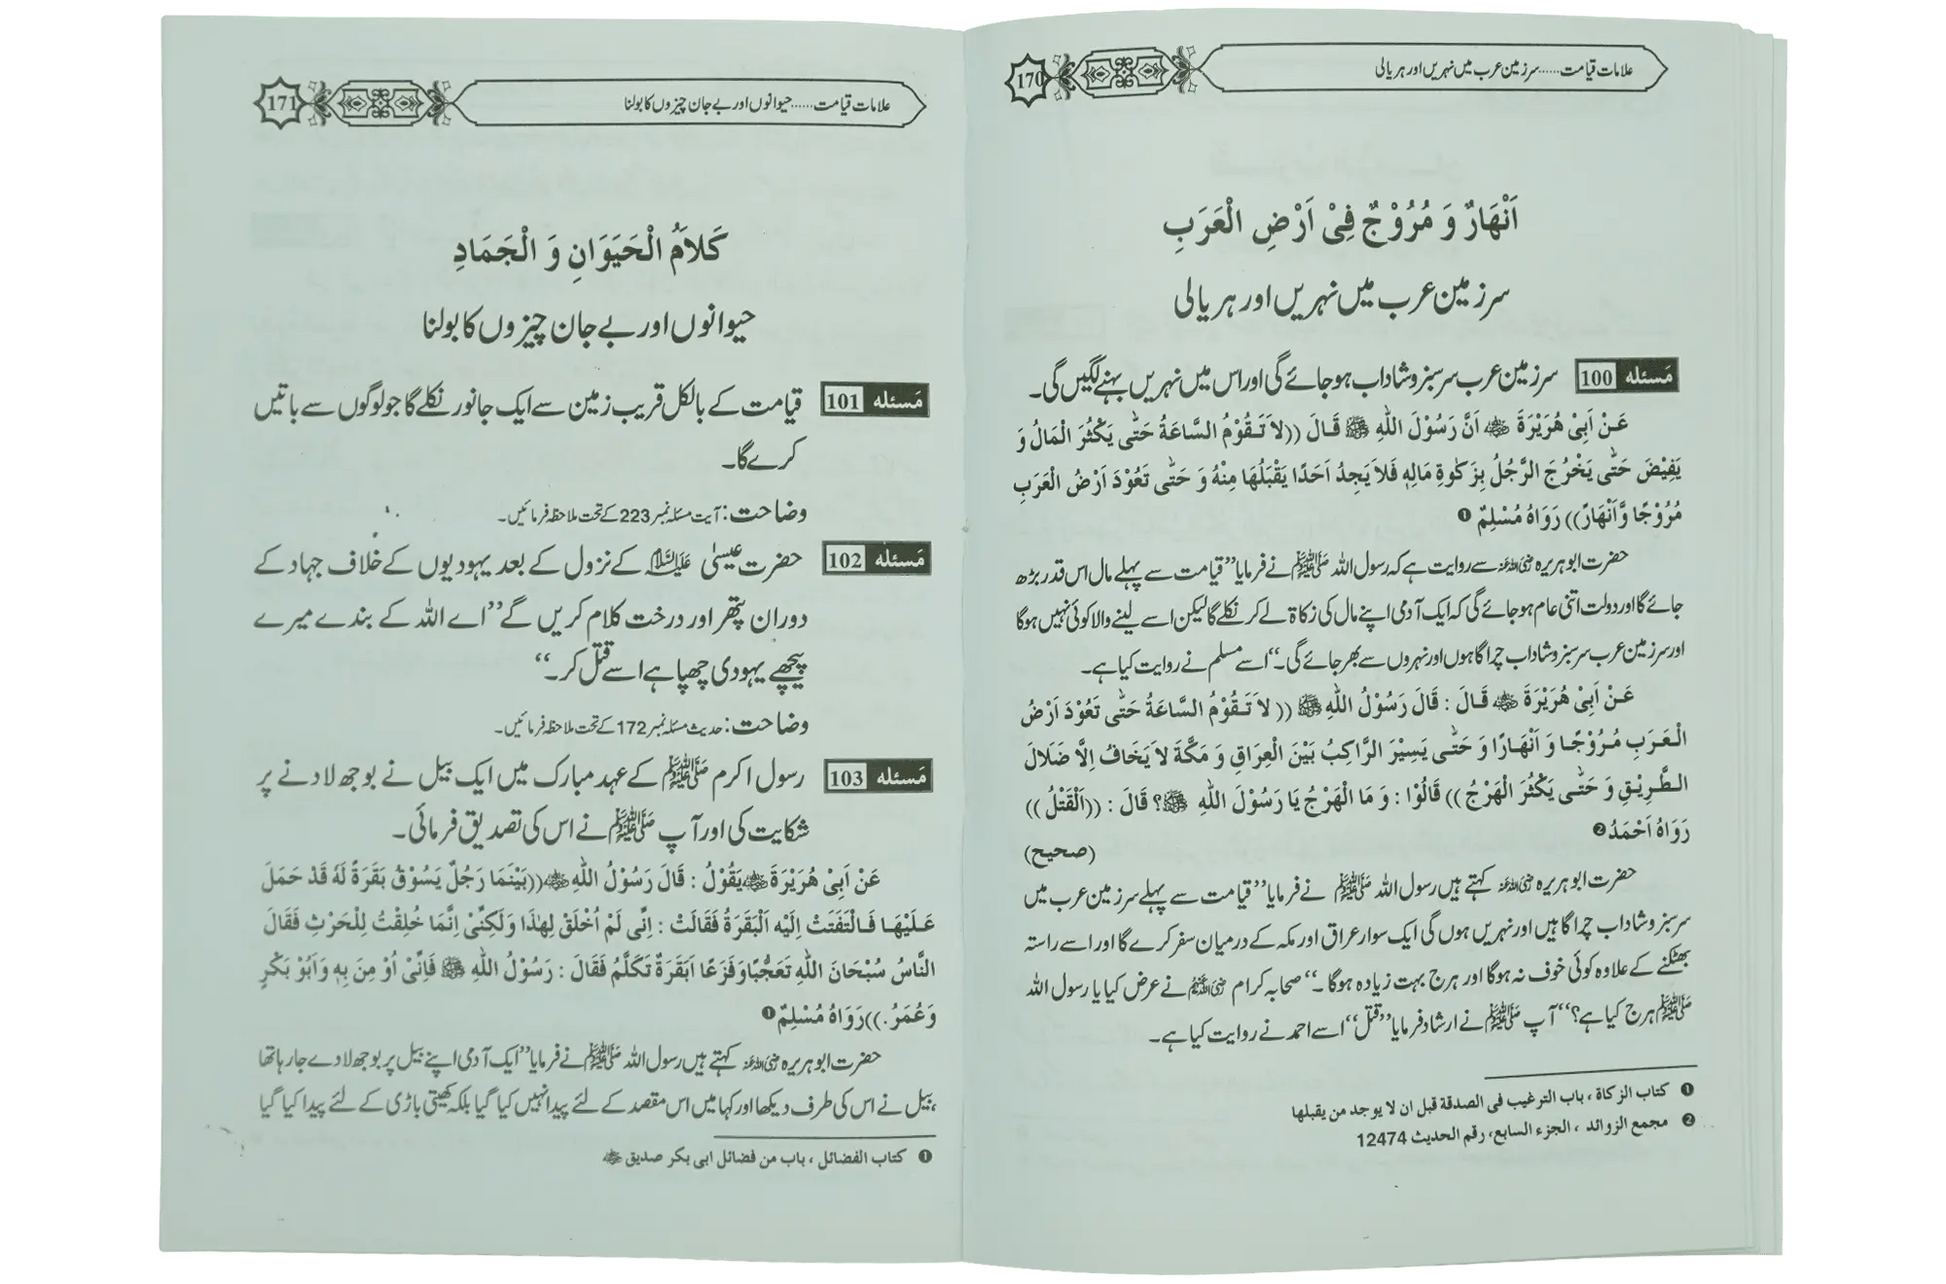 علامات قیامت......سرزمین عرب میں نہریں اور ہریالی
170
اَنْهَارٌ وَ مُرُوْجٌ فِیْ اَرْضِ الْعَرَبِ
سرزمین عرب میں نہریں اور ہریالی
مَسئله 100 سرزمین عرب سرسبز و شاداب ہو جائے گی اور اس میں نہریں بہنے لگیں گی۔
عَنْ اَبِیْ هُرَیْرَةَ ﷜ اَنَّ رَسُوْلَ اللّٰهِ ﷺ قَالَ ((لاَ تَقُوْمُ السَّاعَةُ حَتّٰی یَکْثُرَ الْمَالُ وَ
یَفِیْضَ حَتّٰی یَخْرُجَ الرَّجُلُ بِزَکٰوةِ مَالِهٖ فَلاَ یَجِدُ اَحَدًا یَقْبَلُهَا مِنْهُ وَ حَتّٰی تَعُوْدَ اَرْضُ الْعَرَبِ
مُرُوْجًا وَّاَنْهَارً)) رَوَاهُ مُسْلِمٌ ❶
حضرت ابو ہریرہ ﷜ سے روایت ہے کہ رسول اللہ ﷺ نے فرمایا ”قیامت سے پہلے مال اس قدر بڑھ
جائے گا اور دولت اتنی عام ہو جائے گی کہ ایک آدمی اپنے مال کی زکاۃ لے کر نکلے گا لیکن اسے لینے والا کوئی نہیں ہوگا
اور سرزمین عرب سرسبز و شاداب چراگاہوں اور نہروں سے بھر جائے گی۔“ اسے مسلم نے روایت کیا ہے۔
عَنْ اَبِیْ هُرَیْرَةَ ﷜ قَالَ : قَالَ رَسُوْلُ اللّٰهِ ﷺ (( لاَ تَقُوْمُ السَّاعَةُ حَتّٰی تَعُوْدَ اَرْضُ
الْعَرَبِ مُرُوْجًا وَ اَنْهَارًا وَ حَتّٰی یَسِیْرَ الرَّاکِبُ بَیْنَ الْعِرَاقِ وَ مَکَّةَ لاَ یَخَافُ اِلَّا ضَلَالَ
الطَّرِیْقِ وَ حَتّٰی یَکْثُرَ الْهَرْجُ )) قَالُوْا : وَ مَا الْهَرْجُ یَا رَسُوْلَ اللّٰهِ ﷺ؟ قَالَ : ((اَلْقَتْلُ ))
رَوَاهُ اَحْمَدُ ❷ (صحیح)
حضرت ابو ہریرہ ﷜ کہتے ہیں رسول اللہ ﷺ نے فرمایا ”قیامت سے پہلے سرزمین عرب میں
سرسبز و شاداب چراگاہیں اور نہریں ہوں گی ایک سوار عراق اور مکہ کے درمیان سفر کرے گا اور اسے راستہ
بھٹکنے کے علاوہ کوئی خوف نہ ہوگا اور ہرج بہت زیادہ ہوگا۔“ صحابہ کرام ﷢ نے عرض کیا یا رسول اللہ
ﷺ ہرج کیا ہے؟“ آپ ﷺ نے ارشاد فرمایا ”قتل“ اسے احمد نے روایت کیا ہے۔
❶ کتاب الزکاة ، باب الترغیب فی الصدقة قبل ان لا یوجد من یقبلها
❷ مجمع الزوائد ، الجزء السابع، رقم الحدیث 12474
علامات قیامت......حیوانوں اور بے جان چیزوں کا بولنا
171
کَلَامُ الْحَیَوَانِ وَ الْجَمَادِ
حیوانوں اور بے جان چیزوں کا بولنا
مَسئله 101 قیامت کے بالکل قریب زمین سے ایک جانور نکلے گا جو لوگوں سے باتیں
کرے گا۔
وضاحت : آیت مسئلہ نمبر 223 کے تحت ملاحظہ فرمائیں۔
مَسئله 102 حضرت عیسیٰ علیہ السلام کے نزول کے بعد یہودیوں کے خلاف جہاد کے
دوران پتھر اور درخت کلام کریں گے ”اے اللہ کے بندے میرے
پیچھے یہودی چھپا ہے اسے قتل کر۔“
وضاحت : حدیث مسئلہ نمبر 172 کے تحت ملاحظہ فرمائیں۔
مَسئله 103 رسول اکرم ﷺ کے عہد مبارک میں ایک بیل نے بوجھ لادنے پر
شکایت کی اور آپ ﷺ نے اس کی تصدیق فرمائی۔
عَنْ اَبِیْ هُرَیْرَةَ ﷜ یَقُوْلُ : قَالَ رَسُوْلُ اللّٰهِ ﷺ ((بَیْنَمَا رَجُلٌ یَسُوْقُ بَقَرَةً لَهٗ قَدْ حَمَلَ
عَلَیْهَا فَالْتَفَتَتْ اِلَیْهِ الْبَقَرَةُ فَقَالَتْ : اِنِّی لَمْ اُخْلَقْ لِهٰذَا وَلٰکِنِّیْ اِنَّمَا خُلِقْتُ لِلْحَرْثِ فَقَالَ
النَّاسُ سُبْحَانَ اللّٰهِ تَعَجُّبًا وَفَزَعًا اَبَقَرَةٌ تَکَلَّمُ فَقَالَ : رَسُوْلُ اللّٰهِ ﷺ فَاِنِّیْ اُوْ مِنَ بِهٖ وَاَبُوْ بَکْرٍ
وَعُمَرُ.))رَوَاهُ مُسْلِمٌ ❶
حضرت ابو ہریرہ ﷜ کہتے ہیں رسول اللہ ﷺ نے فرمایا ”ایک آدمی اپنے بیل پر بوجھ لادے جا رہا تھا
،بیل نے اس کی طرف دیکھا اور کہا میں اس مقصد کے لئے پیدا نہیں کیا گیا بلکہ کھیتی باڑی کے لئے پیدا کیا گیا
❶ کتاب الفضائل ، باب من فضائل ابی بکر صدیق ﷜